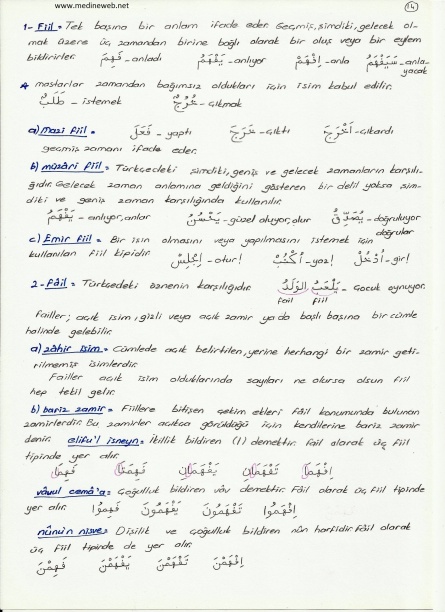 www.medineweb.net
14
1- Fiil = Tek başına bir anlam ifade eder. Geçmiş, şimdiki, gelecek ol-
mak üzere üç zamandan birine bağlı olarak bir oluş veya bir eylem
bildirirler. فَهِمَ - anladı يَفْهَمُ - anlıyor اِفْهَمْ - anla سَيَفْهَمُ - anla-
yacak
* mastarlar zamandan bağımsız oldukları için isim kabul edilir.
طَلَبٌ - istemek خُرُوجٌ - çıkmak
a) Mazi fiil = فَعَلَ - yaptı خَرَجَ - çıktı أَخْرَجَ - çıkardı
geçmiş zamanı ifade eder.
b) müzâri fiil = Türkçedeki şimdiki, geniş ve gelecek zamanların karşılı-
ğıdır. Gelecek zaman anlamına geldiğini gösteren bir delil yoksa şim-
diki ve geniş zaman karşılığında kullanılır.
يَفْهَمُ - anlıyor, anlar يَحْسُنُ - güzel oluyor, olur يُصَدِّقُ - doğruluyor
doğrular
c) Emir fiil = Bir işin olmasını veya yapılmasını istemek için
kullanılan fiil kipidir. اِجْلِسْ - otur! اُكْتُبْ - yaz! اُدْخُلْ - gir!
2- Fâil = Türkçedeki öznenin karşılığıdır. يَلْعَبُ الوَلَدُ - Çocuk oynuyor.
fail fiil
Failler; açık isim, gizli veya açık zamir ya da başlı başına bir cümle
halinde gelebilir.
a) zâhir isim = Cümlede açık belirtilen, yerine herhangi bir zamir geti-
rilmemiş isimlerdir.
Failler açık isim olduklarında sayıları ne olursa olsun fiil
hep tekil gelir.
b) bariz zamir = Fiillere bitişen çekim ekleri fâil konumunda bulunan
zamirlerdir. Bu zamirler açıkça görüldüğü için kendilerine bariz zamir
denir. elifu'l isneyn = ikillik bildiren (ا) demektir. fail olarak üç fiil
tipinde yer alır.
فَهِمَا فَهِمَتَا يَفْهَمَانِ تَفْهَمَانِ اِفْهَمَا
vâvul cemâ'a = Çoğulluk bildiren vâv demektir. Fâil olarak üç fiil tipinde
yer alır. فَهِمُوا يَفْهَمُونَ تَفْهَمُونَ اِفْهَمُوا
nûnün nisve = Dişilik ve çoğulluk bildiren nûn harfidir. Fâil olarak
üç fiil tipinde de yer alır.
فَهِمْنَ يَفْهَمْنَ تَفْهَمْنَ اِفْهَمْنَ